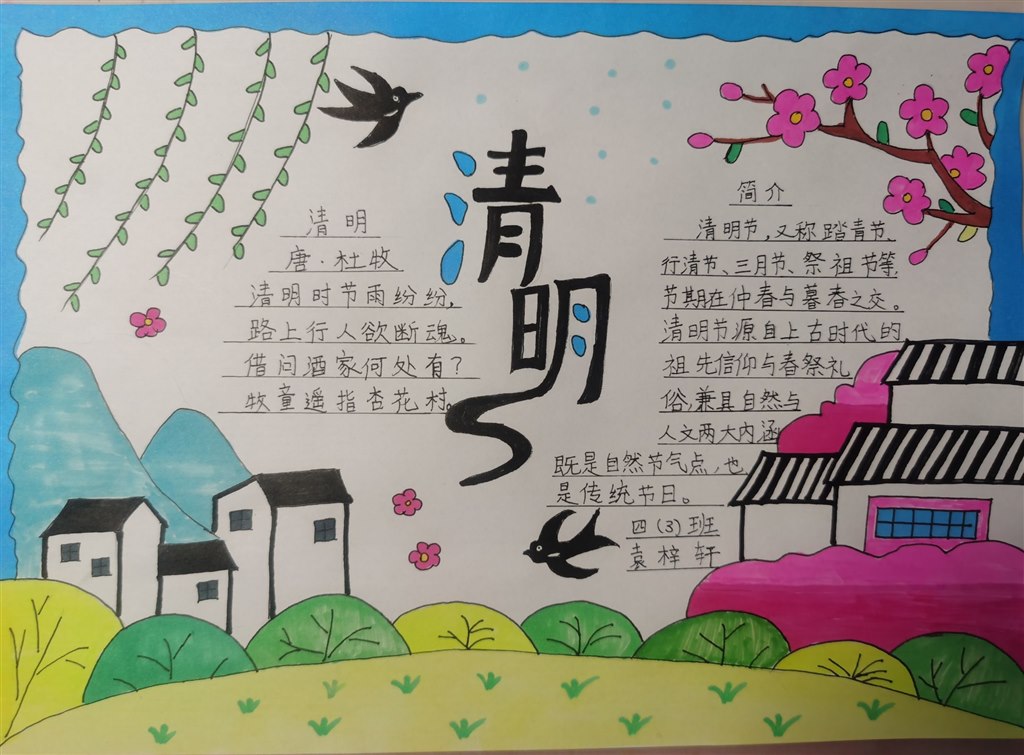 清明
清明
唐·杜牧
清明时节雨纷纷,
路上行人欲断魂。
借问酒家何处有?
牧童遥指杏花村。
简介
清明节,又称踏青节、
行清节、三月节、祭祖节等,
节期在仲春与暮春之交。
清明节源自上古时代的
祖先信仰与春祭礼
俗,兼具自然与
人文两大内涵,
既是自然节气点,也
是传统节日。
四(3)班
袁梓轩